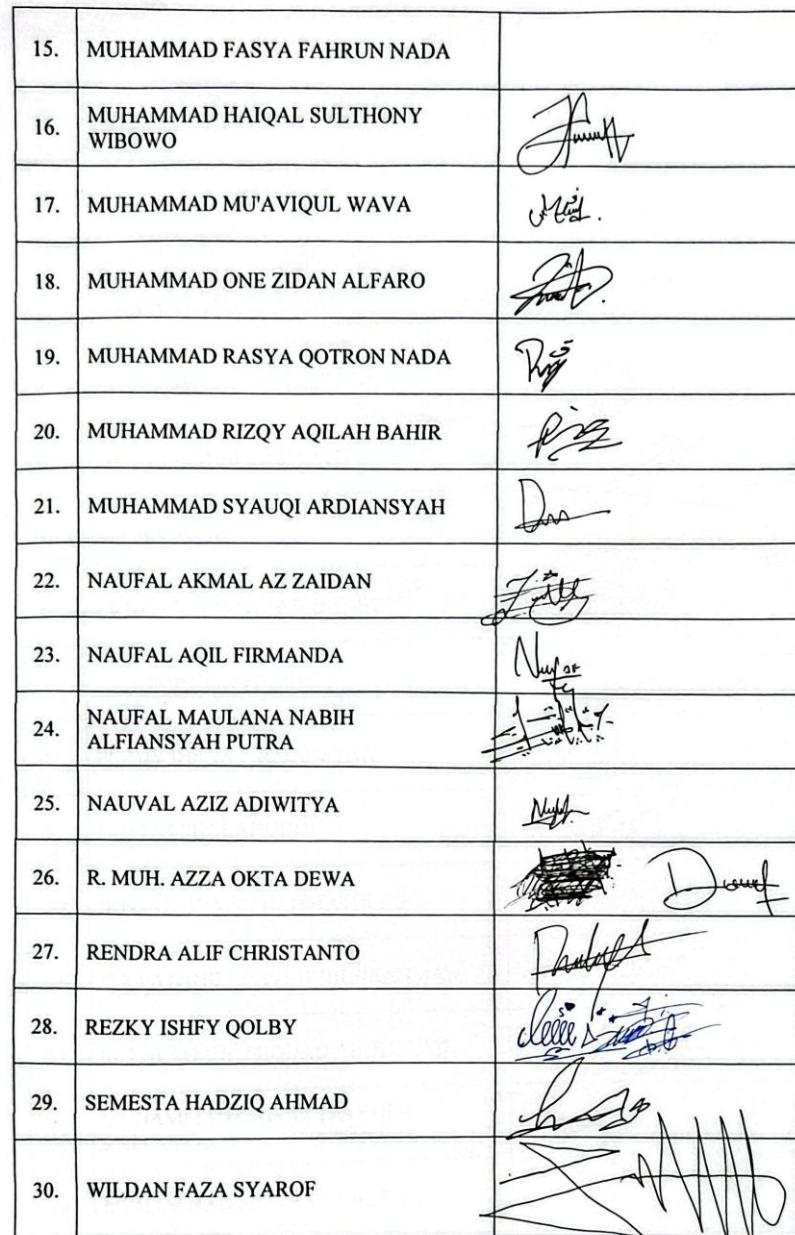 15. MUHAMMAD FASYA FAHRUN NADA
16. MUHAMMAD HAIQAL SULTHONY
WIBOWO
17. MUHAMMAD MU'AVIQUL WAVA
18. MUHAMMAD ONE ZIDAN ALFARO
19. MUHAMMAD RASYA QOTRON NADA
20. MUHAMMAD RIZQY AQILAH BAHIR
21. MUHAMMAD SYAUQI ARDIANSYAH
22. NAUFAL AKMAL AZ ZAIDAN
23. NAUFAL AQIL FIRMANDA
24. NAUFAL MAULANA NABIH
ALFIANSYAH PUTRA
25. NAUVAL AZIZ ADIWITYA
26. R. MUH. AZZA OKTA DEWA
27. RENDRA ALIF CHRISTANTO
28. REZKY ISHFY QOLBY
29. SEMESTA HADZIQ AHMAD
30. WILDAN FAZA SYAROF